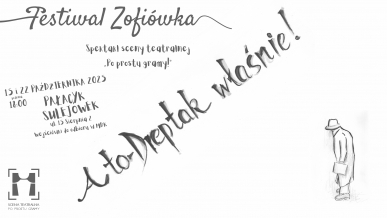 Festiwal Zofiówka
Spektakl sceny teatralnej
„Po prostu gramy!"
15 i 22 PAŹDZIERNIKA 2023
godzina
18:00
PAŁACYK
SULEJÓWEK
ul. 15 Sierpnia 2
A to-Dreptak właśnie!
SCENA TEATRALNA
PO PROSTU GRAMY